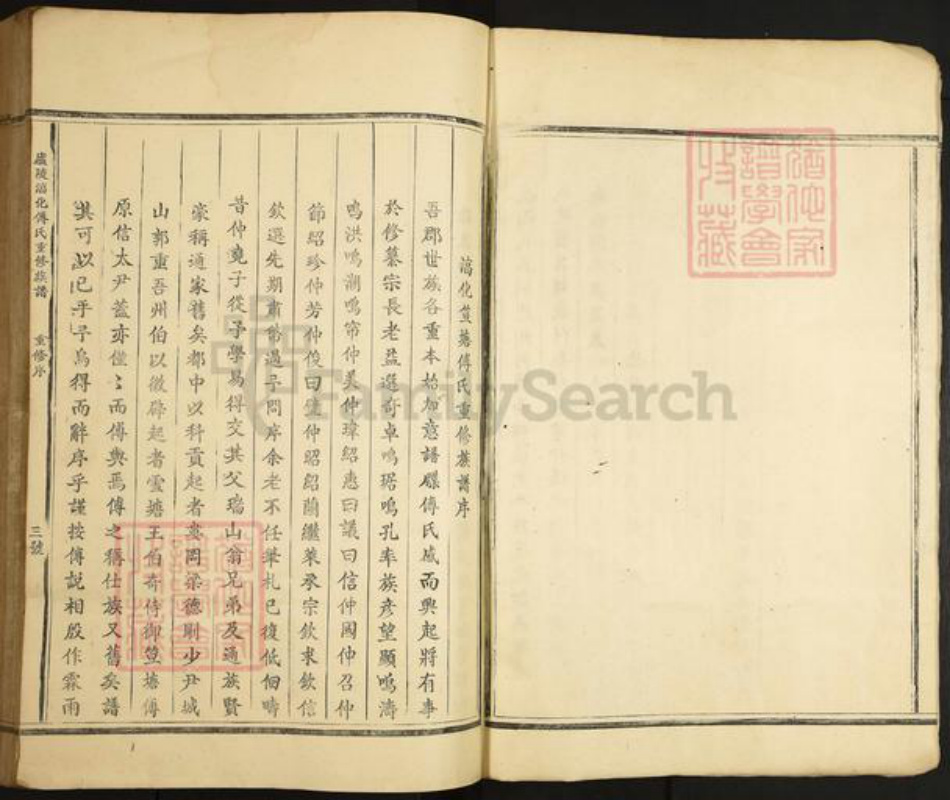 謚化荁塘傅氏重修族譜序
吾郡世族各重本始加意譜牒傅氏咸而興起將有事
於修纂宗長老益選奇卓鳴琚鳴孔率族彥望顯鳴濤
鳴洪鳴湖鳴帘仲美仲瑋紹惠曰議曰信仲國仲召仲
節紹珍仲芳仲俊曰璧仲昭紹蘭繼萊承宗欽求欽信
欽選先期肅幣過予問序余老不任筆札已復低佪疇
昔仲堯子從予學易得交其父瑞山翁兄弟及通族賢
豪稱通家舊矣郡中以科貢起者婁岡梁德剛少尹城
山郭重吾州伯以徵辟起者雲塘王伯奇侍御荁塘傅
原信太尹蓋亦僅〻而傅與焉傅之稱仕族又舊矣譜
其可以已乎予烏得而辭序乎謹按傅說相殷作霖雨
廬陵謚化傅氏重修族譜
重修序
三號
猶他家譜學會收藏
猶他家譜學會收藏
FamilySearch